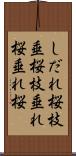 しだれ桜枝
垂桜枝垂れ
桜垂れ桜